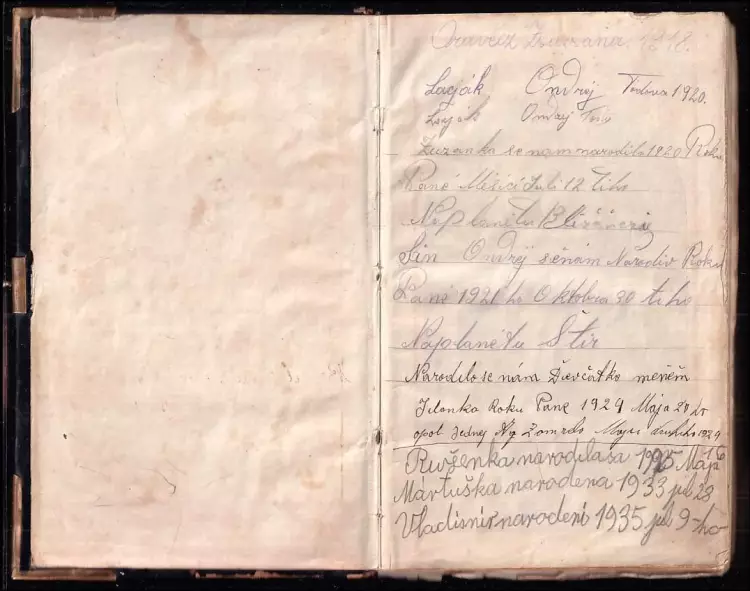 Zuzana 1818.
Lacják Ondrej 1920.
Ondrej
Zuzanka se nam narodila 1920 Roku
Pané Měsíci Juli 12 tiho
Naplanétu Blížěnci
Sin Ondrěj sěnám Narodiv Roku
Pané 1921 ho Oktobra 30 tiho
Naplanétu Štir
Narodilo se nám Děvčátko meněm
Ilonka Roku Pane 1929 Maja 20 ho
opol jednej Maja 1929
Ruženka narodilasa 1925 Maja 16
Mártuška narodena 1933 jul 28
Vladimir narodeni 1935 jul 9-ho